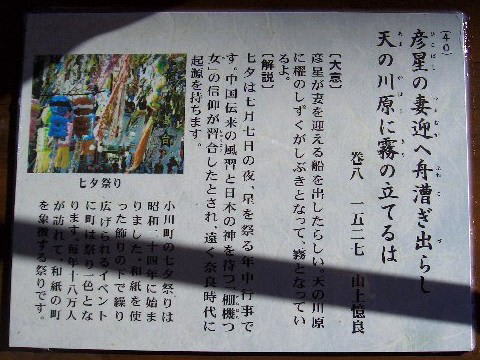 (40)
彦星の妻迎へ舟漕ぎ出らし
天の川原に霧の立てるは
巻八 一五二七 山上憶良
[大意]
彦星が妻を迎える船を出したらしい。天の川原
に櫂のしずくがしぶきとなって、霧となってい
るよ。
[解説]
七夕は七月七日の夜、星を祭る年中行事で
す。中国伝来の風習と日本の神を待つ「棚機つ
女」の信仰が習合したとされ、遠く奈良時代に
起源を持ちます。
七夕祭り
小川町の七夕祭りは
昭和二十四年に始ま
りました。和紙を使
った飾りの下で繰り
広げられるイベント
に町は祭り一色とな
ります。毎年十八万人
が訪れて、和紙の町
を象徴する祭りです。